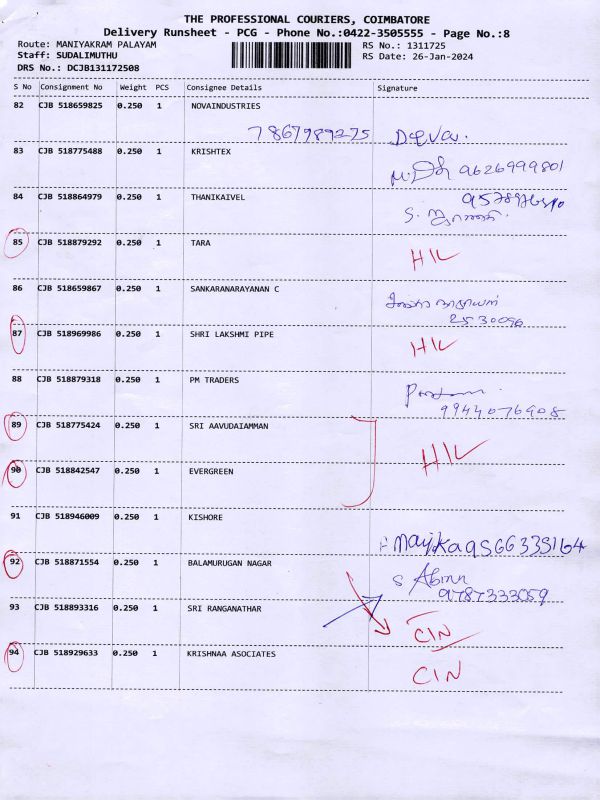 THE PROFESSIONAL COURIERS, COIMBATORE
Delivery Runsheet - PCG - Phone No.:0422-3505555 - Page No.:8
Route: MANIYAKRAM PALAYAM RS No.: 1311725
Staff: SUDALIMUTHU RS Date: 26-Jan-2024
DRS No.: DCJB131172508
S No Consignment No Weight PCS Consignee Details Signature
82 CJB 518659825 0.250 1 NOVAINDUSTRIES
7867989275 Deva.
83 CJB 518775488 0.250 1 KRISHTEX
9626999801
84 CJB 518864979 0.250 1 THANIKAIVEL
S.
85 CJB 518879292 0.250 1 TARA
H/L
86 CJB 518659867 0.250 1 SANKARANARAYANAN C
2530096
87 CJB 518969986 0.250 1 SHRI LAKSHMI PIPE
H/L
88 CJB 518879318 0.250 1 PM TRADERS
9944076908
89 CJB 518775424 0.250 1 SRI AAVUDAIAMMAN
H/L
90 CJB 518842547 0.250 1 EVERGREEN
91 CJB 518946009 0.250 1 KISHORE
9566335164
92 CJB 518871554 0.250 1 BALAMURUGAN NAGAR
S
9787333059
93 CJB 518893316 0.250 1 SRI RANGANATHAR
CIN
94 CJB 518929633 0.250 1 KRISHNAA ASOCIATES
CIN